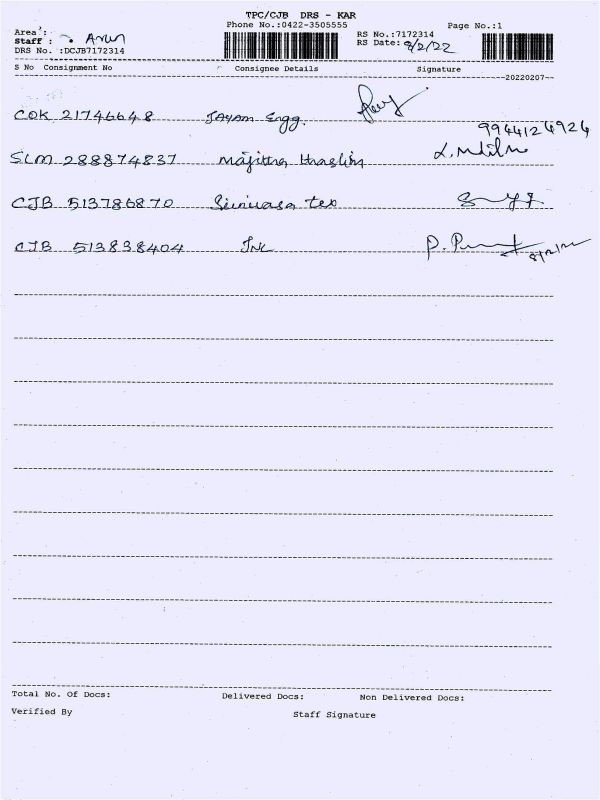 TPC/CJB DRS - KAR
Phone No.:0422-3505555
Page No.:1
Area :
Staff : Arun
DRS No. :DCJB7172314
RS No.:7172314
RS Date: 8/2/22
S No Consignment No Consignee Details Signature
20220207
COK 21746648 Jayam Engg.
9944124924
SLM 288874837 Majitha
CJB 513786870 Srinivasa tex
CJB 513838404 P. 8/2/22
Total No. Of Docs: Delivered Docs: Non Delivered Docs:
Verified By Staff Signature